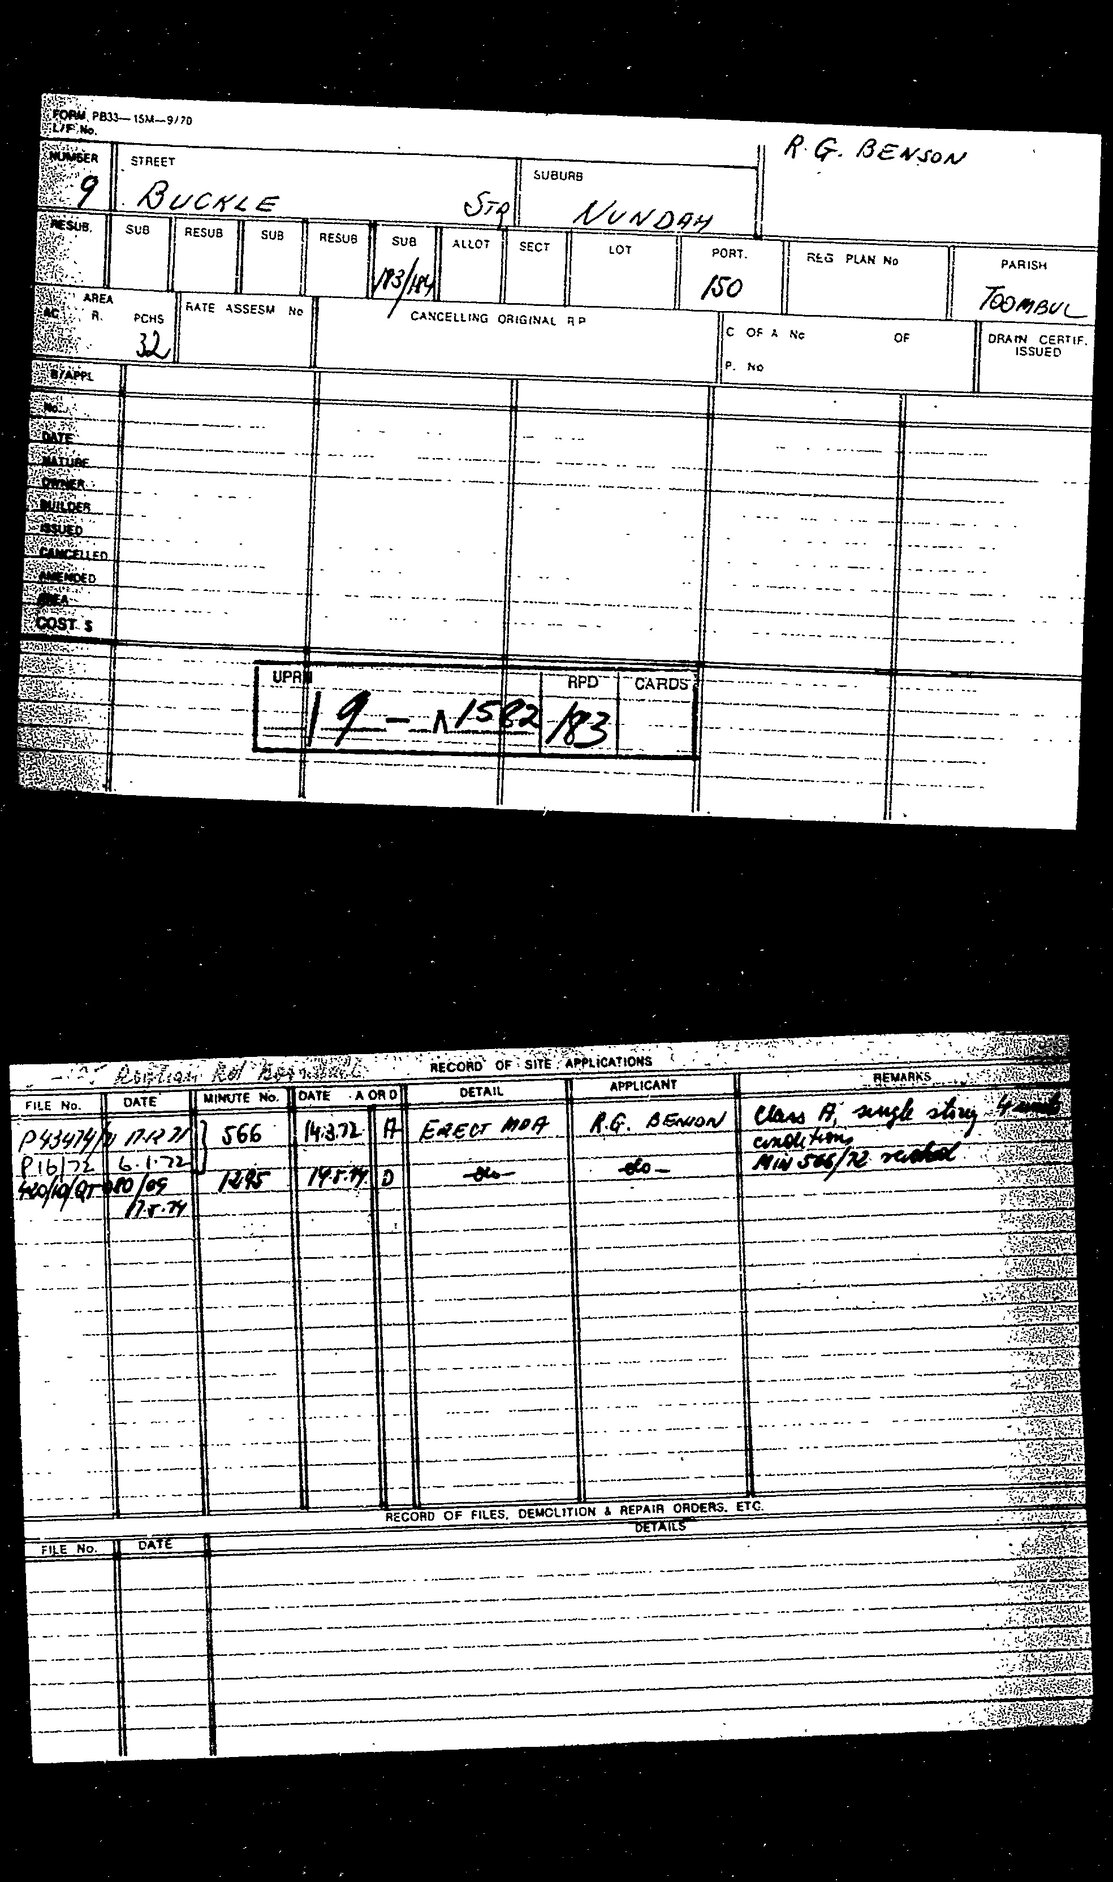 FORM PB33—15M—9/70
L/F No.
R. G. BENSON
NUMBER STREET SUBURB
9 BUCKLE STR NUNDAH
RESUB. SUB RESUB SUB RESUB SUB ALLOT SECT LOT PORT. REG PLAN No PARISH
183/184 150 TOOMBUL
AREA
AC R. PCHS RATE ASSESM No CANCELLING ORIGINAL R P C OF A No OF DRAIN CERTIF. ISSUED
32 P. No
B/APPL
No.
DATE
NATURE
OWNER
BUILDER
ISSUED
CANCELLED
AMENDED
AREA
COST $
UPRN RPD CARDS
9 - 1582 183
RECORD OF SITE APPLICATIONS
FILE No. DATE MINUTE No. DATE A OR D DETAIL APPLICANT REMARKS
P43474/71 17.12.71 566 14.3.72 A ERECT MDA R.G. BENSON Class A, single story 4 units
conditions
P16/72 6.1.72 Min 566/72
1295 D do do
RECORD OF FILES, DEMOLITION & REPAIR ORDERS, ETC.
FILE No. DATE DETAILS